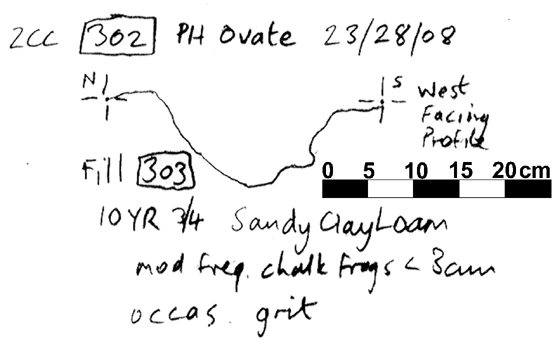 2CC 302 PH Ovate 23/28/08
N
S
West
Facing
Profile
Fill 303
0 5 10 15 20cm
10YR 3/4 Sandy Clay Loam
mod freq. chalk frags < 3cm
occas. grit